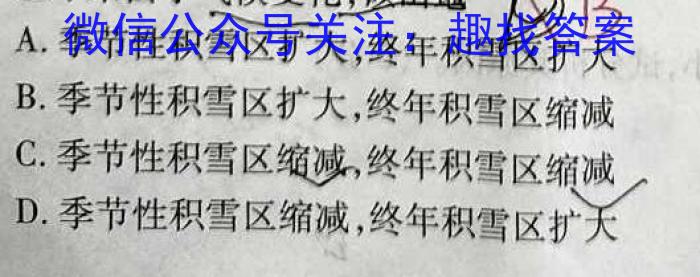 A. 季节性积雪区扩大,终年积雪区扩大
微信公众号关注：趣找答案
B. 季节性积雪区扩大,终年积雪区缩减
C. 季节性积雪区缩减,终年积雪区缩减
D. 季节性积雪区缩减,终年积雪区扩大